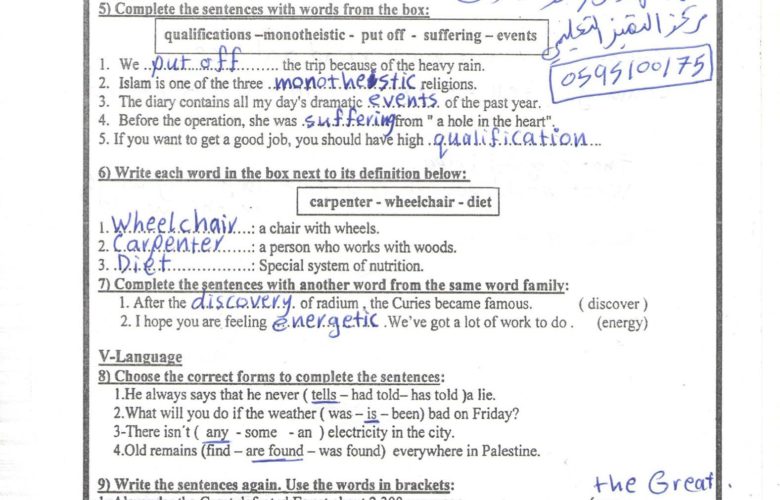 5) Complete the sentences with words from the box:
qualifications –monotheistic - put off - suffering – events
مركز التميز التعليمي
0595100175
1. We ..put off......... the trip because of the heavy rain.
2. Islam is one of the three .monotheistic religions.
3. The diary contains all my day's dramatic events. of the past year.
4. Before the operation, she was .suffering from " a hole in the heart".
5. If you want to get a good job, you should have high .qualification...
6) Write each word in the box next to its definition below:
carpenter - wheelchair - diet
1. Wheelchair....: a chair with wheels.
2. Carpenter........: a person who works with woods.
3. Diet....................: Special system of nutrition.
7) Complete the sentences with another word from the same word family:
1. After the discovery. of radium , the Curies became famous. ( discover )
2. I hope you are feeling energetic .We've got a lot of work to do . (energy)
V-Language
8) Choose the correct forms to complete the sentences:
1.He always says that he never ( tells – had told– has told )a lie.
2.What will you do if the weather ( was – is – been) bad on Friday?
3-There isn't ( any - some - an ) electricity in the city.
4.Old remains (find – are found – was found) everywhere in Palestine.
9) Write the sentences again. Use the words in brackets:
the Great